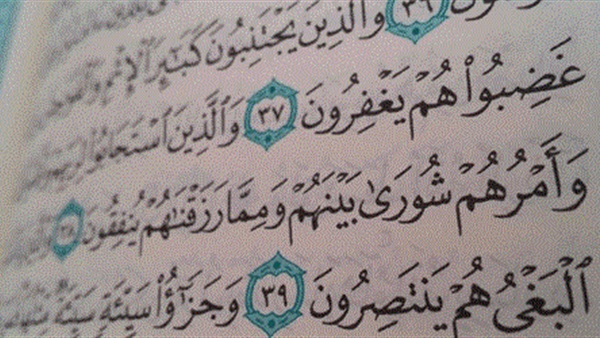 ٣٦ وَٱلَّذِينَ يَجْتَنِبُونَ كَبَٰٓئِرَ ٱلْإِثْمِ
غَضِبُوا۟ هُمْ يَغْفِرُونَ ٣٧ وَٱلَّذِينَ ٱسْتَجَابُوا۟
وَأَمْرُهُمْ شُورَىٰ بَيْنَهُمْ وَمِمَّا رَزَقْنَٰهُمْ يُنفِقُونَ ٣٨
ٱلْبَغْىُ هُمْ يَنتَصِرُونَ ٣٩ وَجَزَٰٓؤُا۟ سَيِّئَةٍ سَيِّئَةٌ